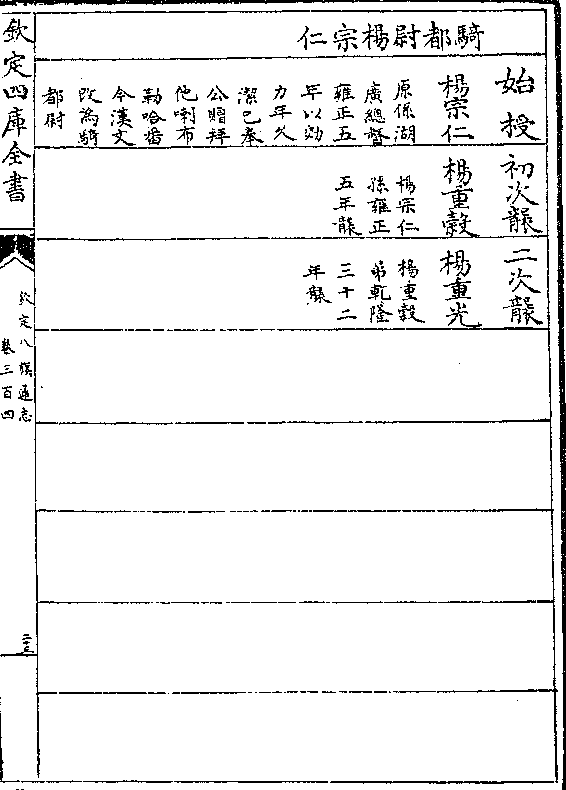 騎都尉楊宗仁
始授
楊宗仁
原係湖
廣總督
雍正五
年以効
力年久
潔己奉
公贈拜
他喇布
勒哈番
今漢文
改為騎
都尉
初次襲
楊重穀
楊宗仁
孫雍正
五年襲
二次襲
楊重光
楊重穀
弟乾隆
三十二
年襲
欽定四庫全書
欽定八旗通志
卷三百四